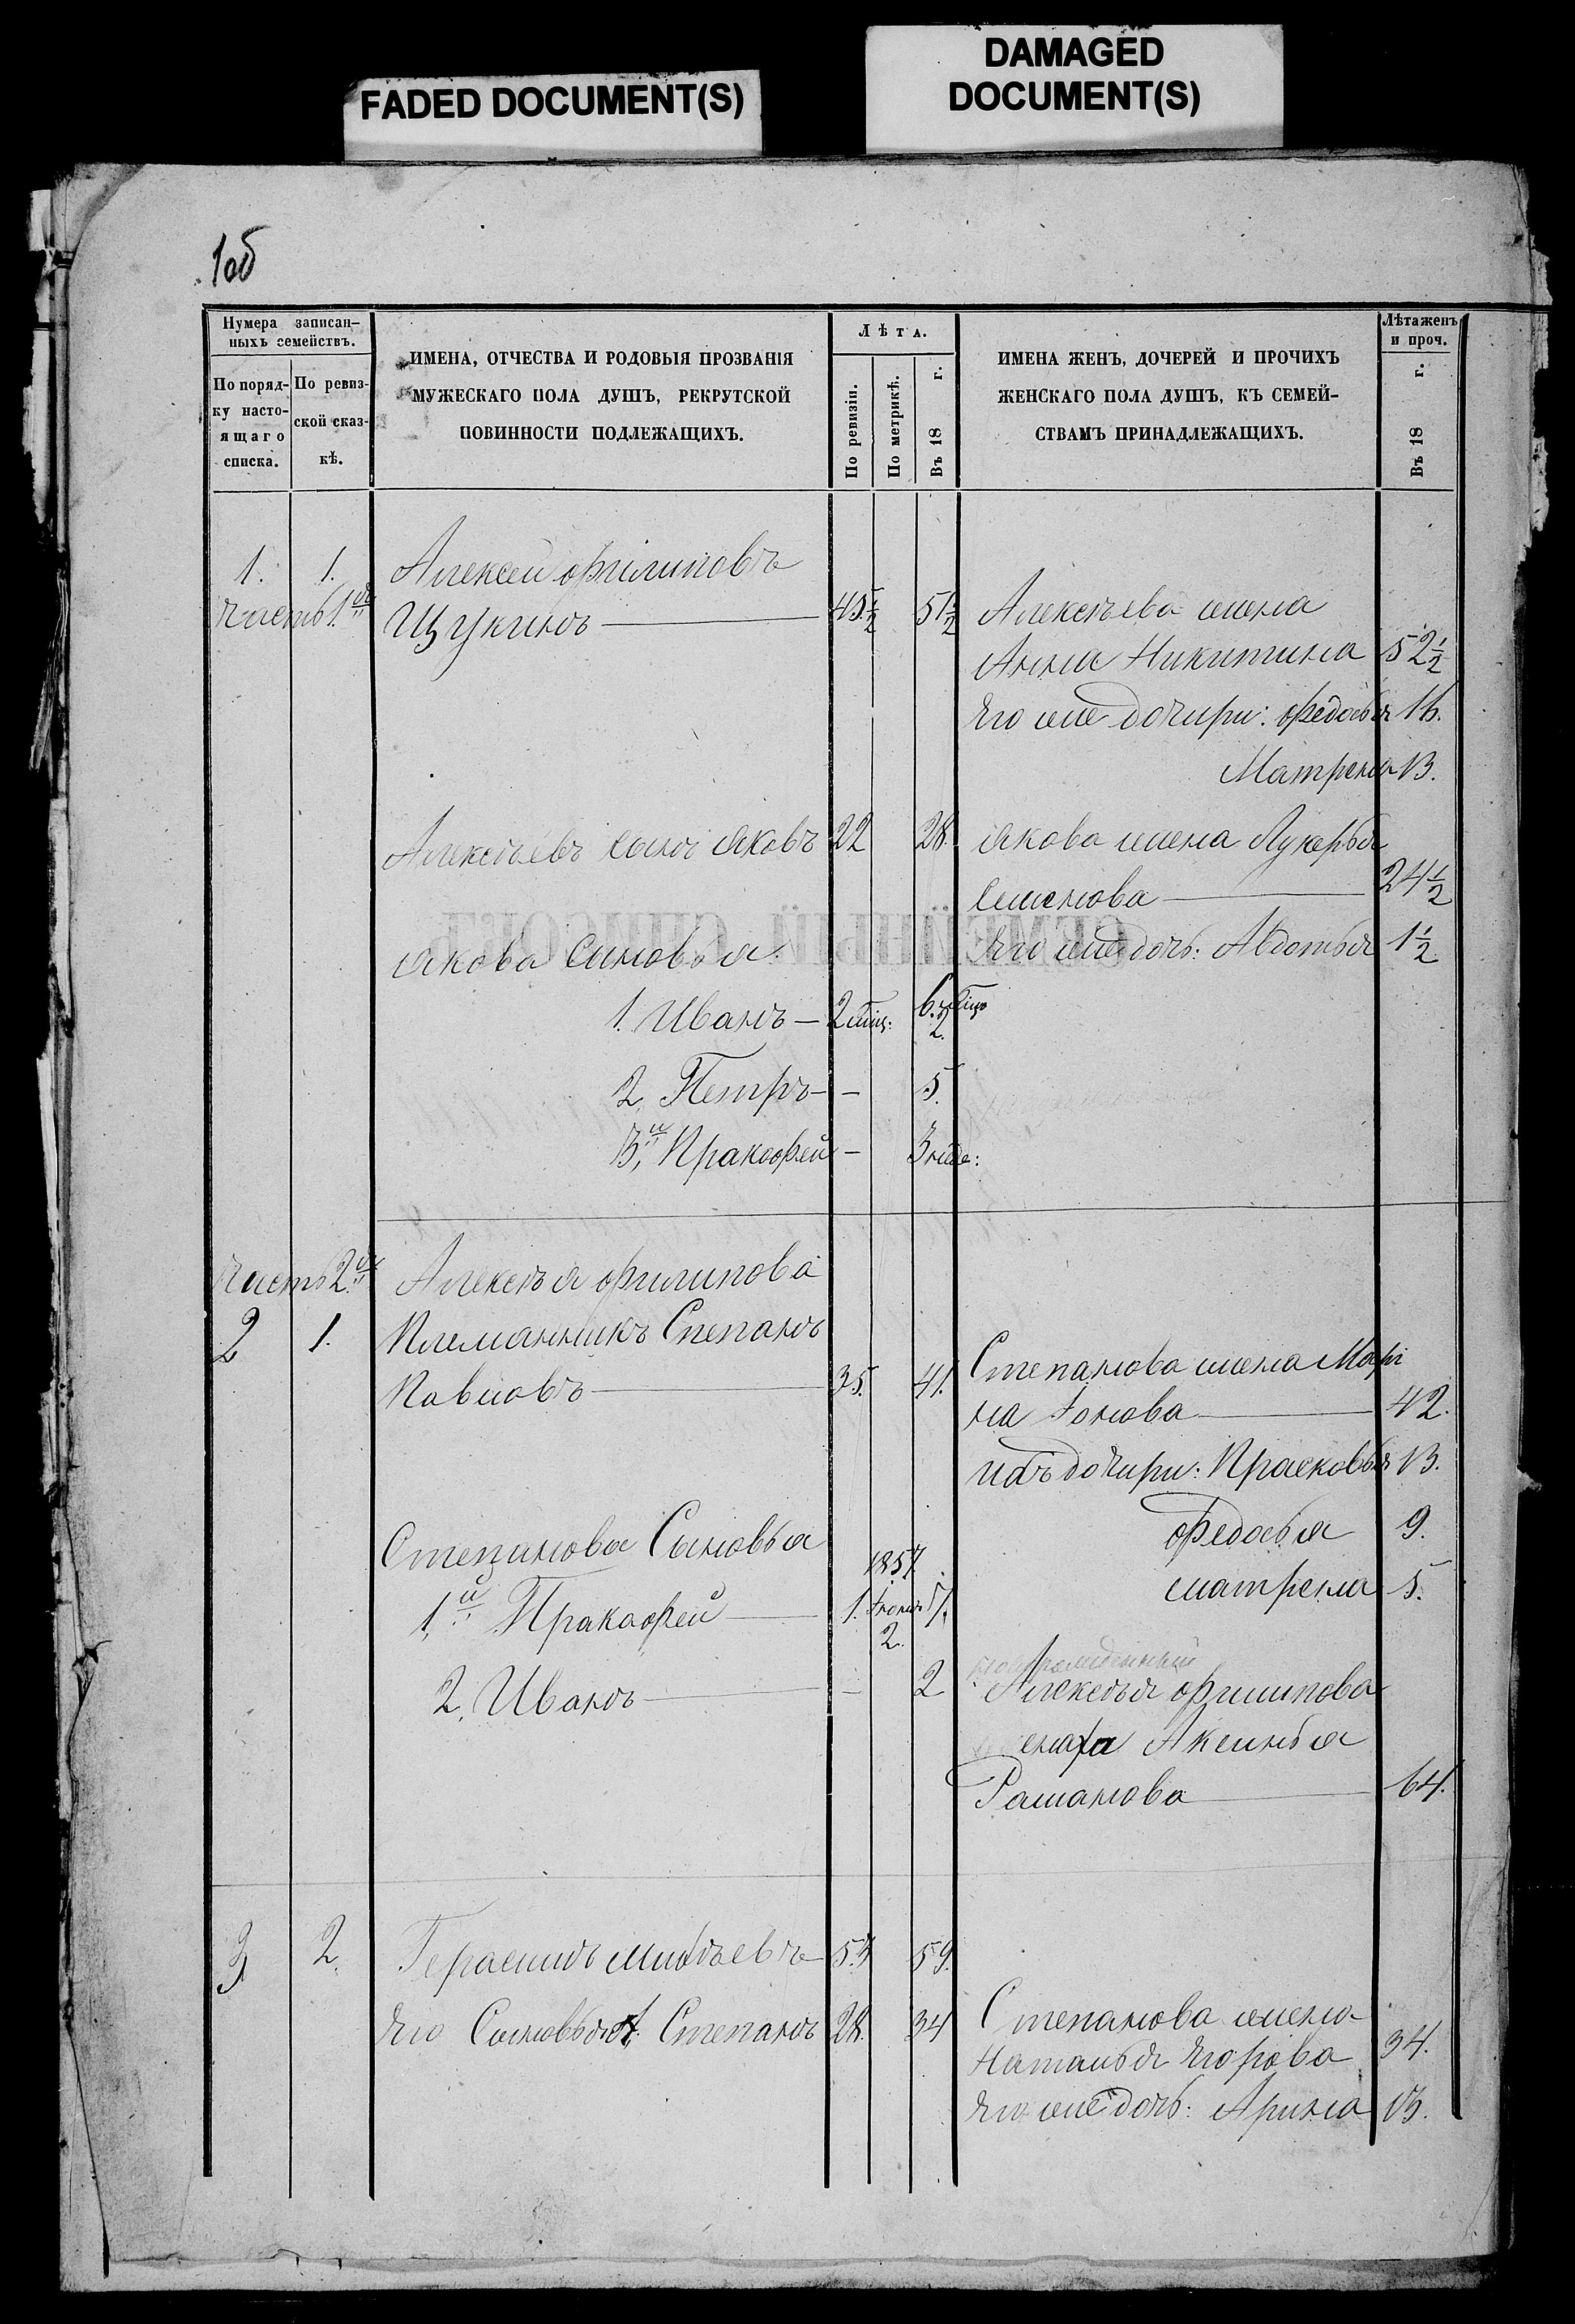 FADED DOCUMENT(S)
DAMAGED
DOCUMENT(S)
1об
Нумера записан-
ныхъ семействъ.
По поряд-
ку насто-
ящаго
списка.
По ревиз-
ской сказ-
кѣ.
ИМЕНА, ОТЧЕСТВА И РОДОВЫЯ ПРОЗВАНІЯ
МУЖЕСКАГО ПОЛА ДУШЪ, РЕКРУТСКОЙ
ПОВИННОСТИ ПОДЛЕЖАЩИХЪ.
Лѣта.
По ревизіи.
По метрикѣ.
Въ 18 г.
ИМЕНА ЖЕНЪ, ДОЧЕРЕЙ И ПРОЧИХЪ
ЖЕНСКАГО ПОЛА ДУШЪ, КЪ СЕМЕЙ-
СТВАМЪ ПРИНАДЛЕЖАЩИХЪ.
Лѣта женъ
и проч.
Въ 18 г.
1. 1. Алексей Филиповъ
Часть 1я Щукинъ 45½ 51½ Алексѣева жена
Анна Никитина 52½
Его же дочири: Федосья 16.
Матрена 13.
Алексѣевъ сынъ Яковъ 22 28. Якова жена Лукерья
Семенова 24½
Якова Сыновья. Его же дочь: Авдотья 1½
1. Иванъ 2
2, Петръ - 5.
3й, Пракофей - 3 неде:
Часть 2я Алексѣя Филипова
2 1. Племянникъ Степанъ
Павловъ 35. 41. Степанова жена Мари
на Ионова 42.
Ихъ дочири: Прасковья 13.
Федосья 9.
Матрена 5.
Степанова Сыновья 1857
1,й Пракофей 1. 2. 7.
2, Иванъ - 2 Алексѣя Филипова
Аксинья
Раманова 64.
3 2. Герасимъ 53 59.
Его Сыновья: 1, Степанъ 28. 34 Степанова жена
Наталья Егорова 34.
Его же дочь: Арина 13.